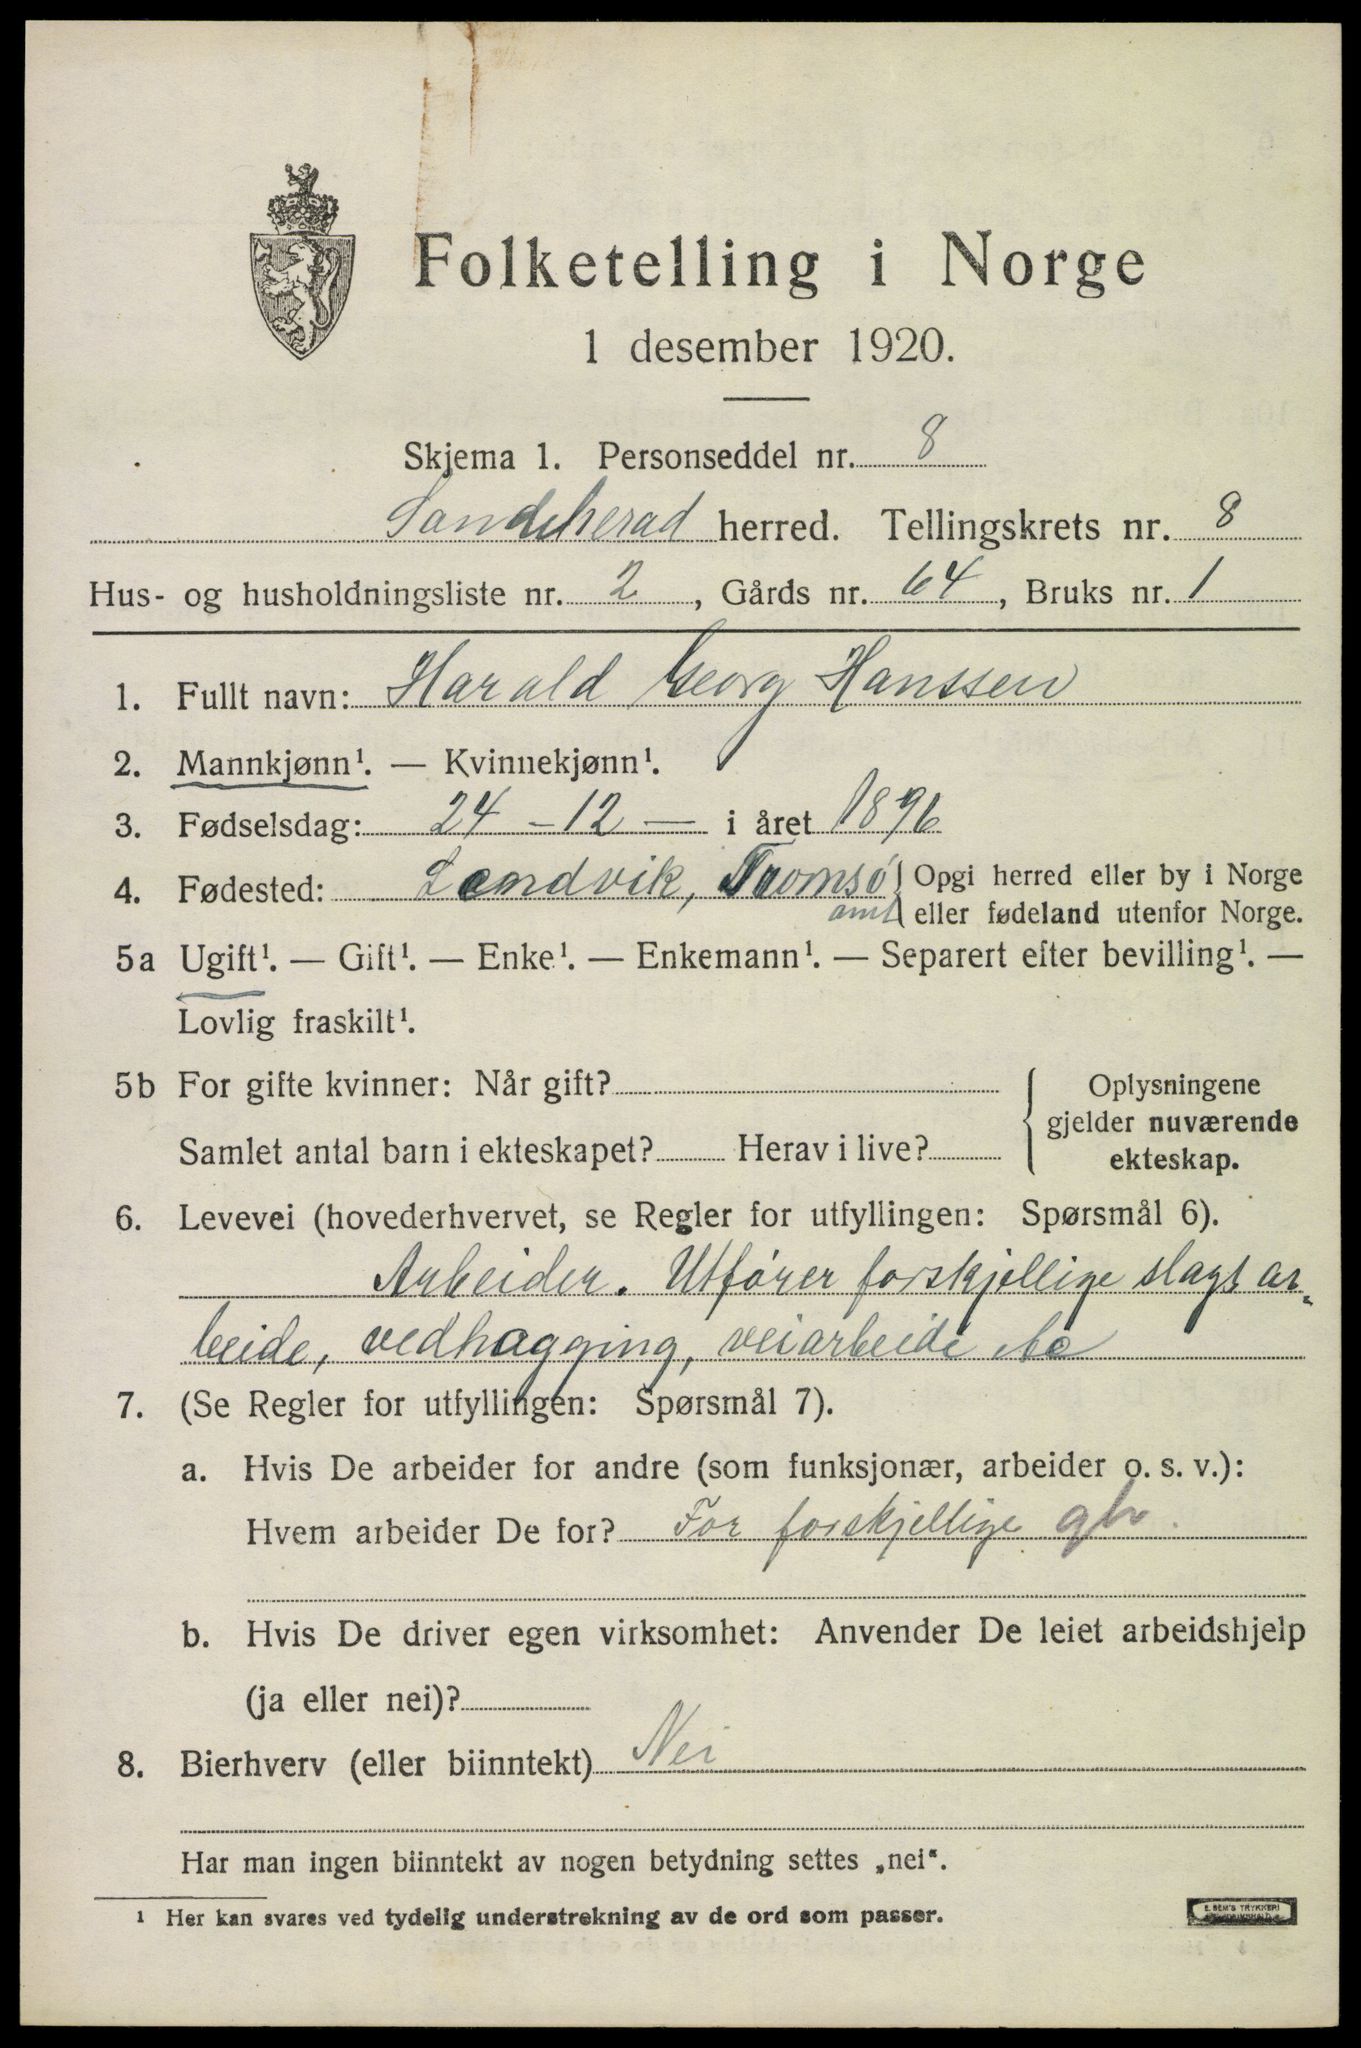 Folketelling i Norge
1 desember 1920.
Skjema 1. Personseddel nr. 8
Sandeherad herred. Tellingskrets nr. 8
Hus- og husholdningsliste nr. 2, Gårds nr. 64, Bruks nr. 1
1. Fullt navn: Harald Georg Hanssen
2. Mannkjønn¹. — Kvinnekjønn¹.
3. Fødselsdag: 24 - 12 — i året 1896
4. Fødested: Sandvik, Tromsø Opgi herred eller by i Norge
amt eller fødeland utenfor Norge.
5a Ugift¹. — Gift¹. — Enke¹. — Enkemann¹. — Separert efter bevilling¹. —
Lovlig fraskilt¹.
5b For gifte kvinner: Når gift?
Samlet antal barn i ekteskapet? Herav i live?
Oplysningene
gjelder nuværende
ekteskap.
6. Levevei (hovederhvervet, se Regler for utfyllingen: Spørsmål 6).
Arbeider. Utfører forskjellige slags ar-
beide, vedhagging, veiarbeide
7. (Se Regler for utfyllingen: Spørsmål 7).
a. Hvis De arbeider for andre (som funksjonær, arbeider o. s. v.):
Hvem arbeider De for? For forskjellige gbr.
b. Hvis De driver egen virksomhet: Anvender De leiet arbeidshjelp
(ja eller nei)?
8. Bierhverv (eller biinntekt) Nei
Har man ingen biinntekt av nogen betydning settes „nei“.
¹ Her kan svares ved tydelig understrekning av de ord som passer.
E. SEM'S TRYKKERI